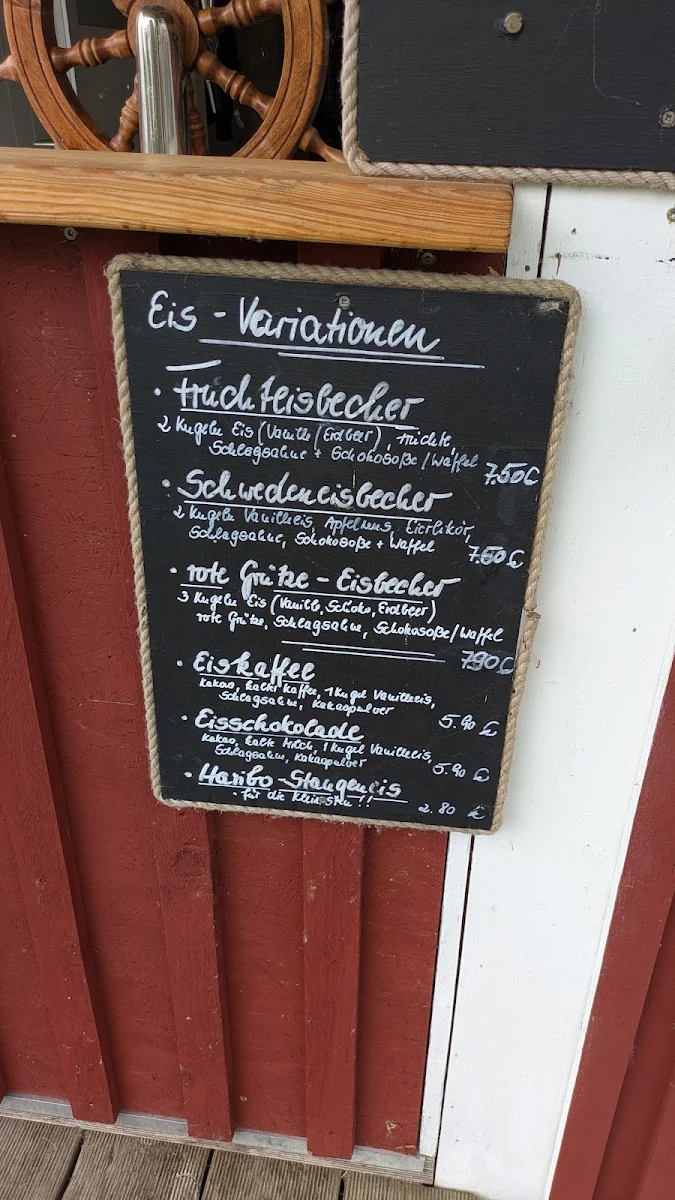 Eis - Variationen
• Früchteisbecher
2 Kugeln Eis (Vanille/Erdbeer), Früchte,
Schlagsahne + Schokosoße/Waffel
7.50€
• Schwedeneisbecher
2 Kugeln Vanilleeis, Apfelmus, Eierlikör,
Schlagsahne, Schokosoße + Waffel
7.50 €
• rote Grütze - Eisbecher
3 Kugeln Eis (Vanille, Schoko, Erdbeer)
rote Grütze, Schlagsahne, Schokosoße/Waffel
7.90 €
• Eiskaffee
Kakao, kalter Kaffee, 1 Kugel Vanilleeis,
Schlagsahne, Kakaopulver
5.90 €
• Eisschokolade
Kakao, kalte Milch, 1 Kugel Vanilleeis,
Schlagsahne, Kakaopulver
5.90 €
• Haribo - Stangeneis
- für die Kleinsten!!
2.80 €